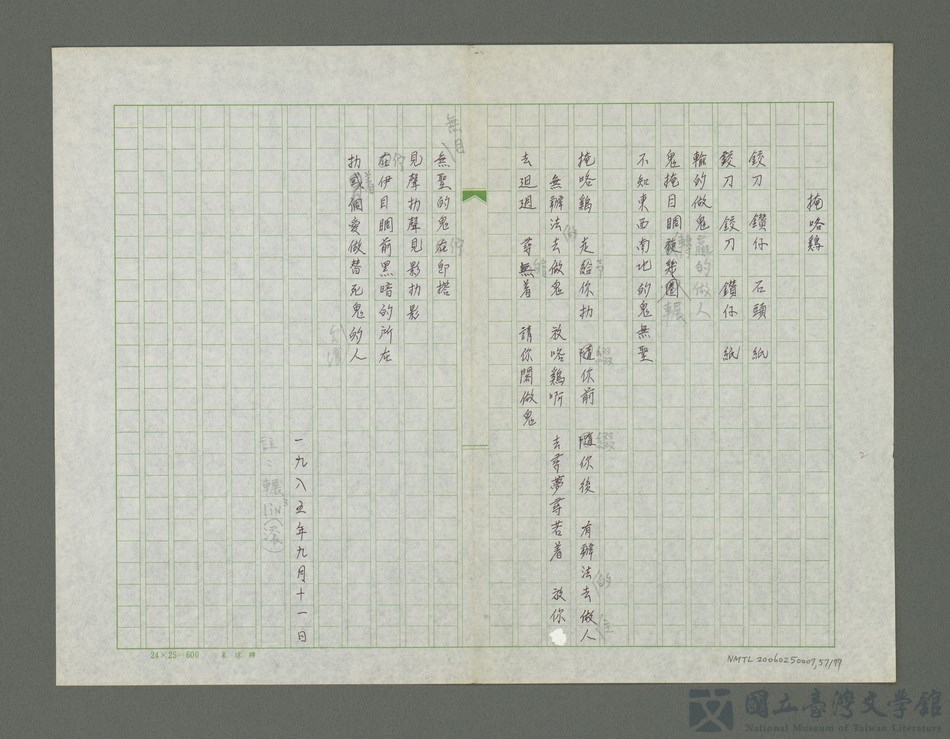 掩咯鷄
鉸刀　鑽仔　石頭　紙
鉸刀　鉸刀　鑽仔　紙
輸的做鬼
贏的做人
鬼掩目睭　圈
輾
不知東西南北的鬼無聖
掩咯鷄　走給你扐　隨你前　隨你後　有辦法去做人
綴
綴
無辦法去做鬼　放咯鷄啊　去尋夢尋若着　放你
的
去𨑨迌　尋無着　請你閣做鬼
無聖的鬼在即搭
佇
無目
見聲扐聲見影扐影
在伊目睭前黑暗的所在
佇
扐 個愛做替死鬼的人
着
一九八五年九月十一日
註：輾lin³
24×25=600
2
NMTL 20060250007,57/77
國立臺灣文學館
National Museum of Taiwan Literature